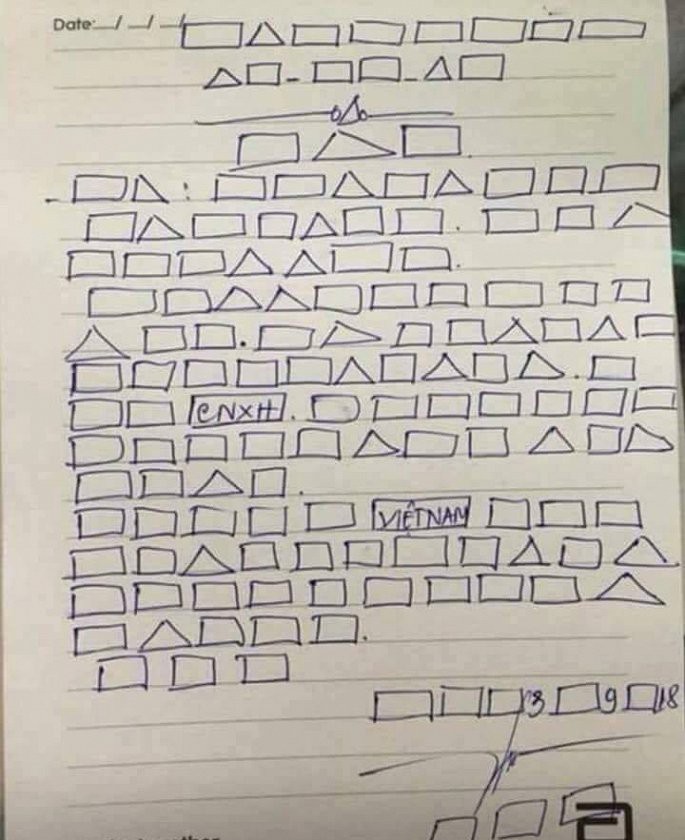 Date: / / / □△□□□□□□
△□-□□-△□
□△□
- □△: □□△□△□□□
□△□□△□□. □□△
□□□△△□□.
□□△△□□□□□□
△□□.□△□□△□△□
□□□□□△□△□△.□
□□ CNXH. □□□□□□□
□□□□□△□□△□△
□□△□.
□□□□□ VIỆTNAM □□□
□□△□□□□□△□△
□□□□□□□□□△
□△□□□.
□□□
□□□3□9□18
□□□